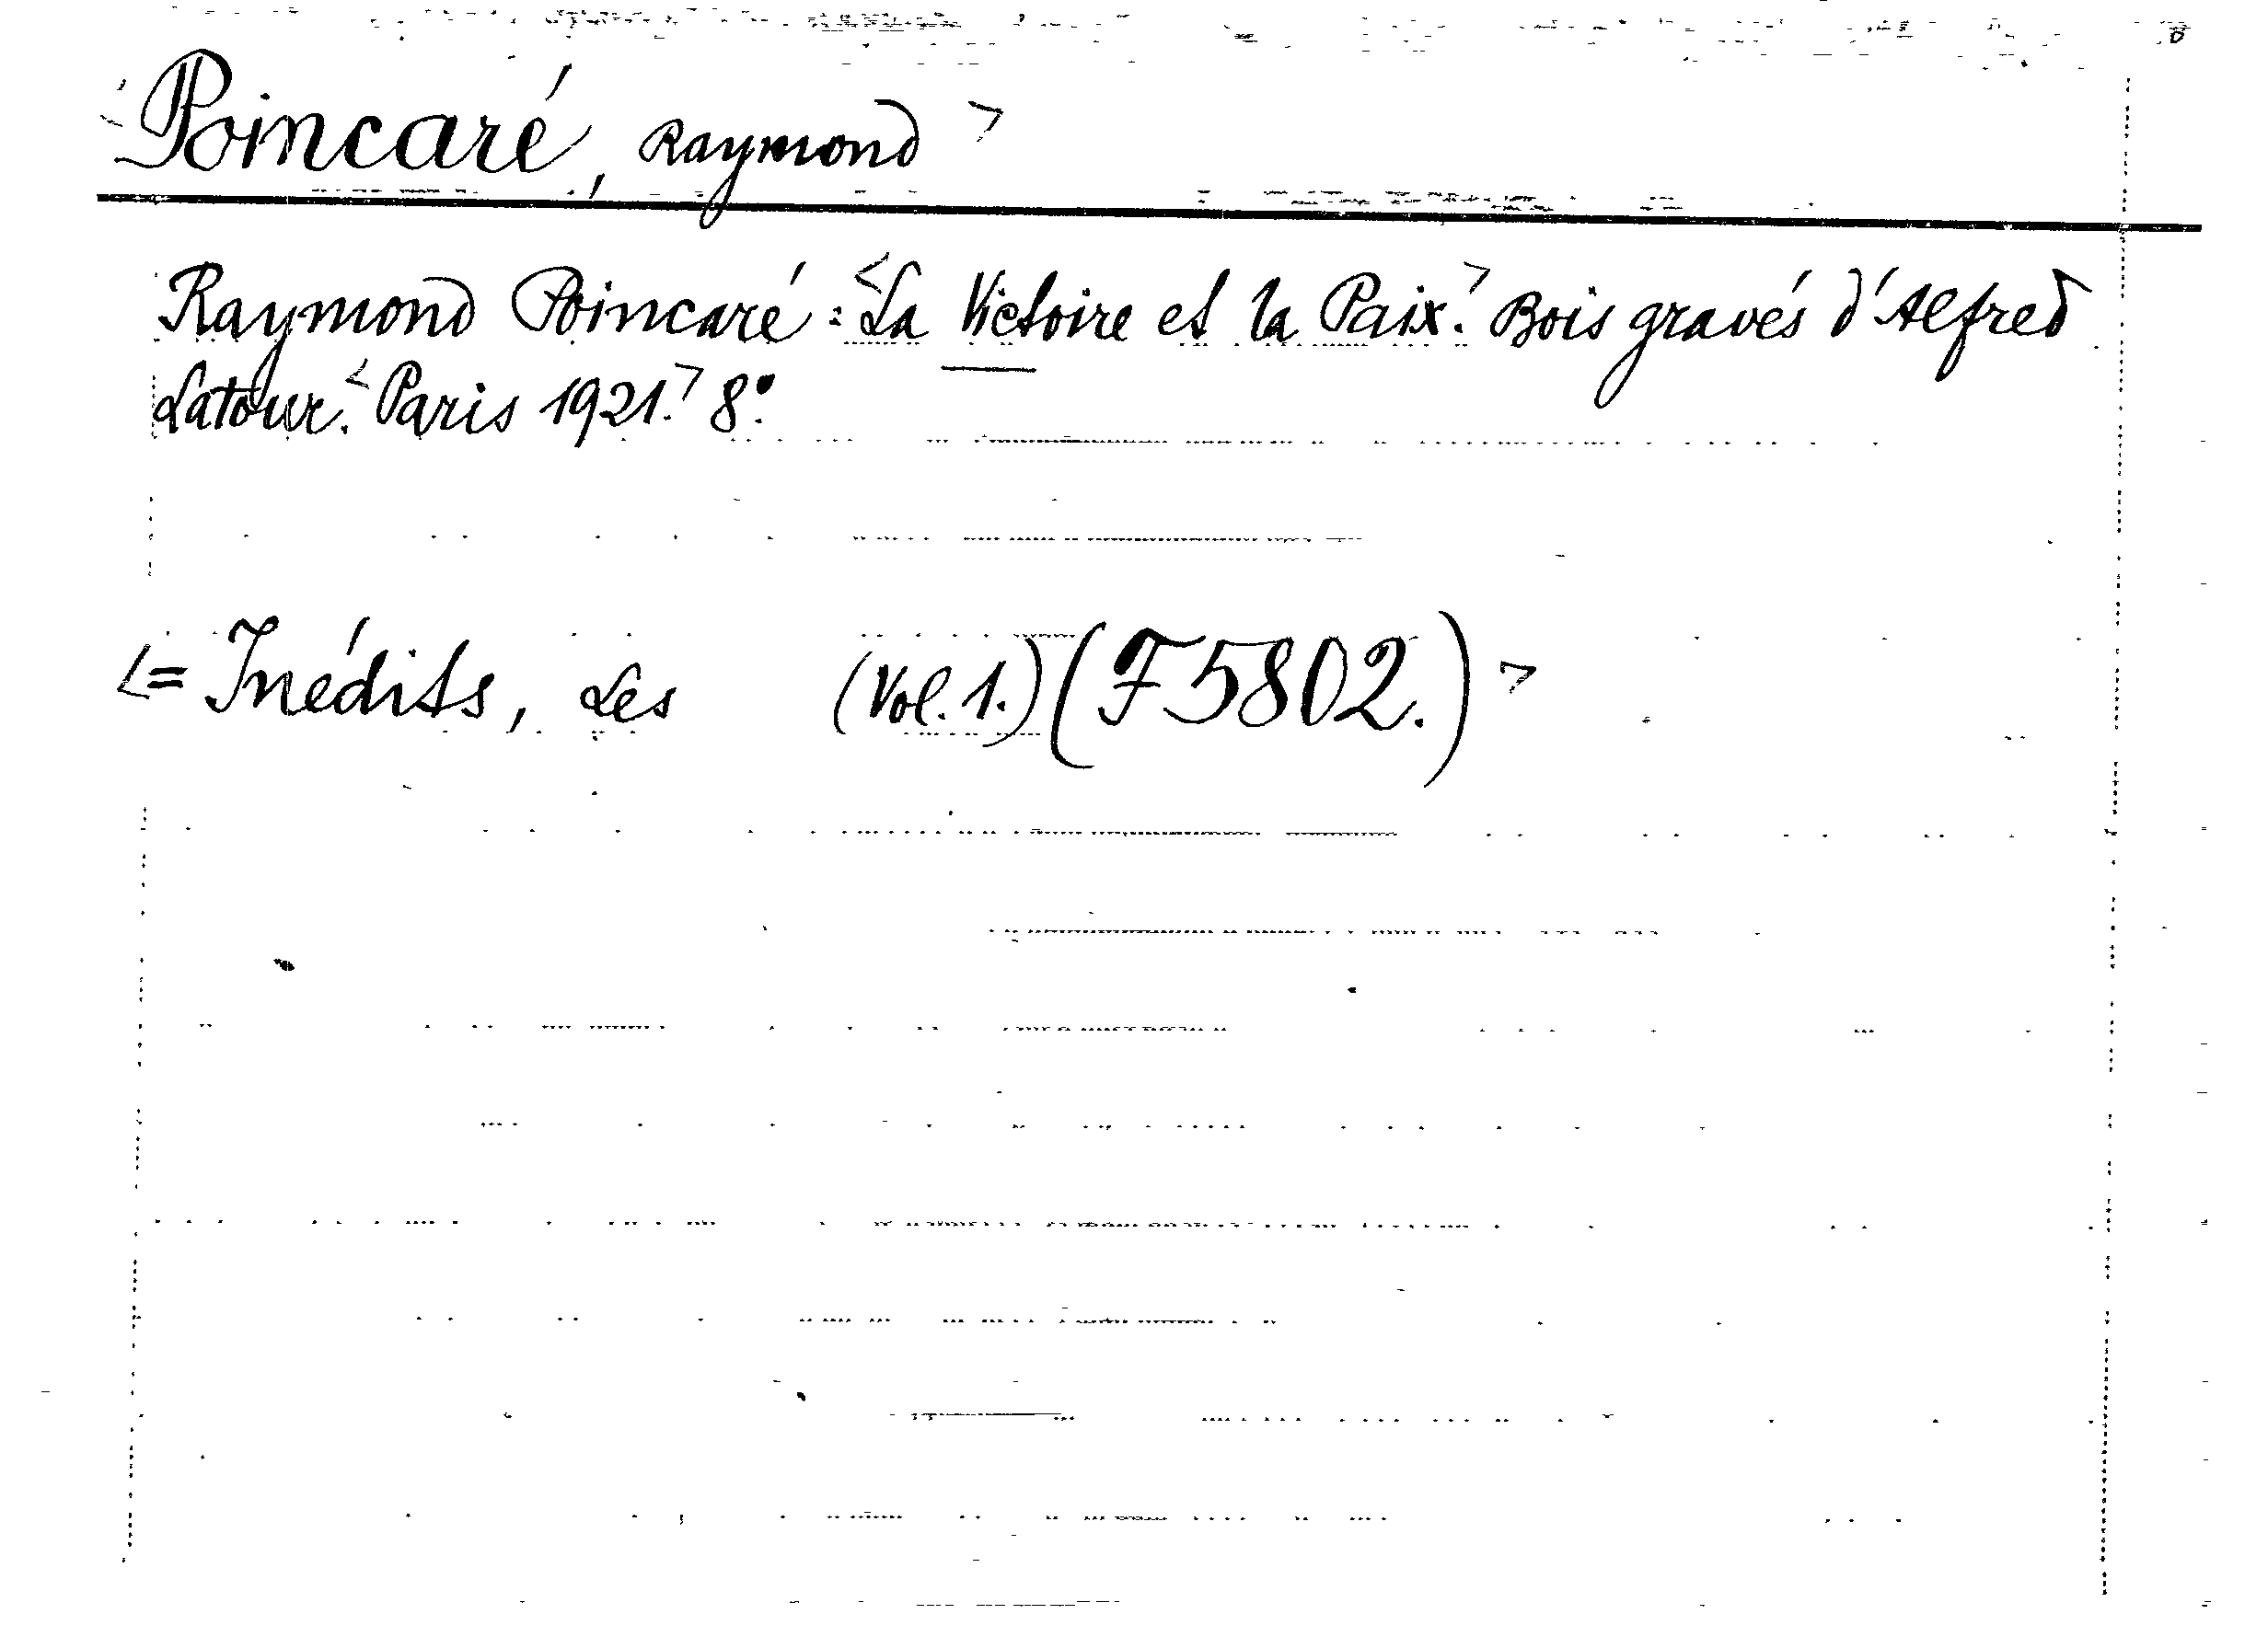 <Poincaré, Raymond>
Raymond Poincaré: <La Victoire et la Paix.> Bois gravés d'Alfred
Latour. <Paris 1921.> 8°.
<= Inédits, Les (Vol. 1.) (F 5802.)>